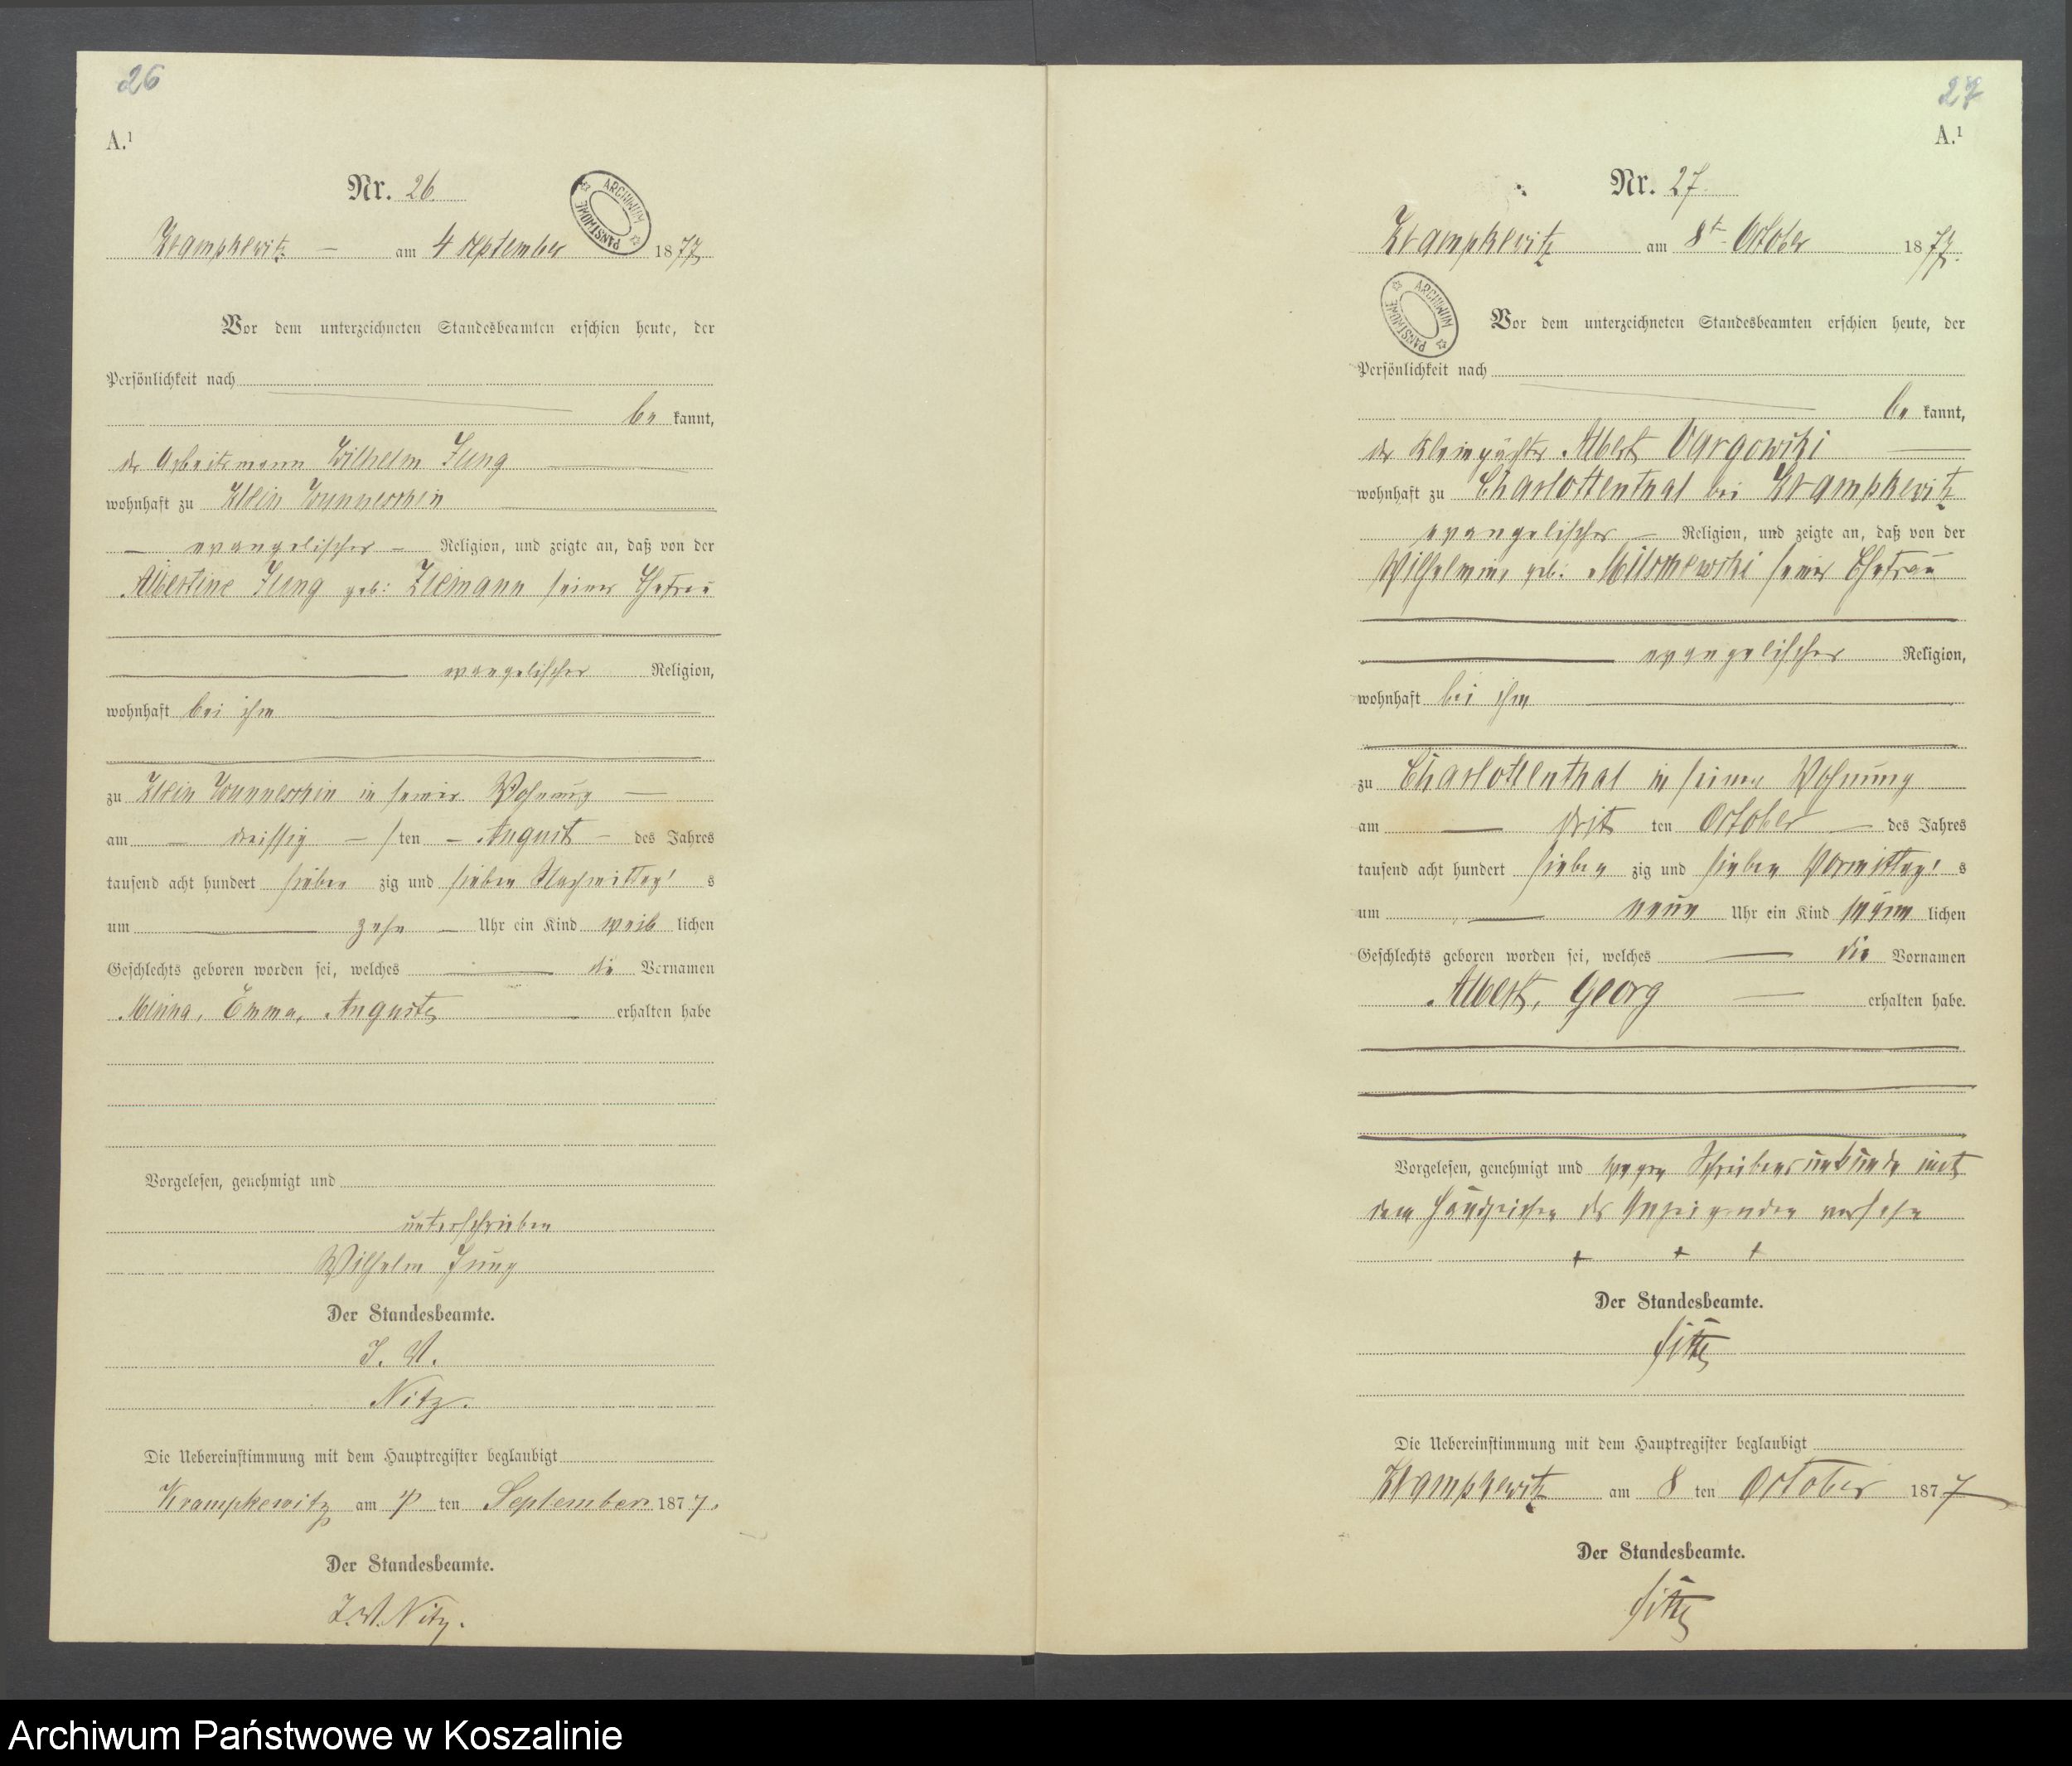 26
A.¹
Nr. 26.
ARCHIWUM PAŃSTWOWE
Krampkewitz — am 4 September 1877
Vor dem unterzeichneten Standesbeamten erschien heute, der
Persönlichkeit nach
be kannt,
der Arbeitsmann Wilhelm Jung
wohnhaft zu Klein Wunneschin
— evangelischer — Religion, und zeigte an, daß von der
Albertine Jung geb: Ziemann seiner Ehefrau
evangelischer Religion,
wohnhaft bei ihm
zu Klein Wunneschin in seiner Wohnung —
am — dreissig — sten — August — des Jahres
tausend acht hundert sieben zig und sieben Nachmittag's
um zehn — Uhr ein Kind weib lichen
Geschlechts geboren worden sei, welches — die Vornamen
Minna, Emma, Auguste — erhalten habe
Vorgelesen, genehmigt und
unterschrieben
Wilhelm Jung
Der Standesbeamte.
J. V.
Nitz.
Die Uebereinstimmung mit dem Hauptregister beglaubigt
Krampkewitz am ten September 1877.
Der Standesbeamte.
J. V. Nitz.
27
A.¹
Nr. 27.
Krampkewitz am 8t October 1877.
ARCHIWUM PAŃSTWOWE
Vor dem unterzeichneten Standesbeamten erschien heute, der
Persönlichkeit nach
be kannt,
der Kleinpächter Albert Vargowski —
wohnhaft zu Charlottenthal bei Krampkewitz
evangelischer — Religion, und zeigte an, daß von der
Wilhelmine geb. seiner Ehefrau
evangelischer Religion,
wohnhaft bei ihm
zu Charlottenthal in seiner Wohnung
am — drit ten October — des Jahres
tausend acht hundert sieben zig und sieben Vormittag's
um — neun Uhr ein Kind männ lichen
Geschlechts geboren worden sei, welches — die Vornamen
Albert, Georg — erhalten habe.
Vorgelesen, genehmigt und wegen Schreibensunkunde mit
dem Handzeichen des Anzeigenden versehen
+ + +
Der Standesbeamte.
Die Uebereinstimmung mit dem Hauptregister beglaubigt
Krampkewitz am 8 ten October 1877
Der Standesbeamte.
Archiwum Państwowe w Koszalinie